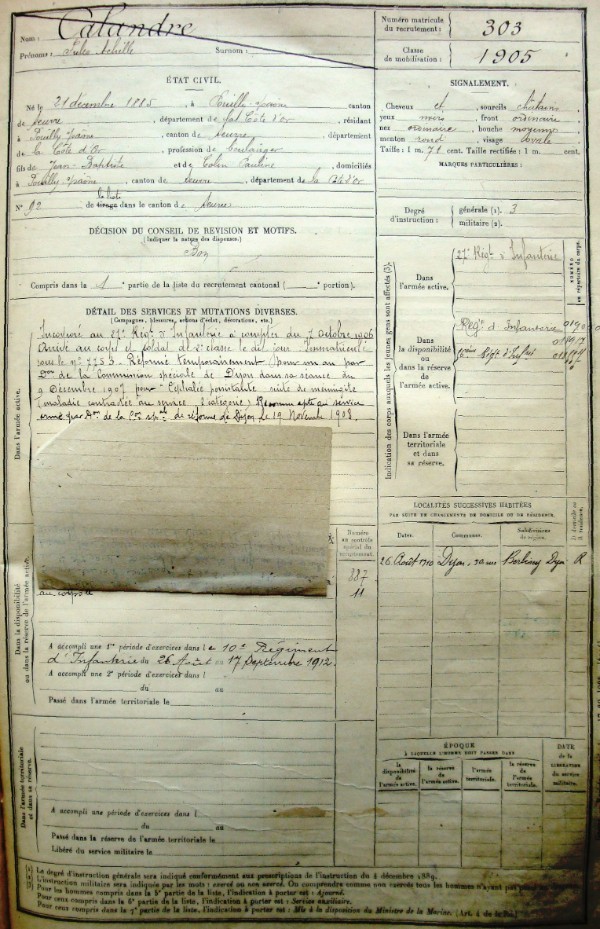 Nom : Calandre
Prénoms : Jules Achille Surnom :
Numéro matricule
du recrutement :
303
Classe
de mobilisation :
1905
ÉTAT CIVIL.
Né le 21 décembre 1885, à Pouilly s/Saône canton
de Seurre, département de la Côte d'or, résidant
à Pouilly s/Saône, canton de Seurre, département
de la Côte d'Or profession de boulanger
fils de Jean-Baptiste et de Colin Pauline domiciliés
à Pouilly s/Saône, canton de Seurre, département de la Côte d'or
N° 92 de tirage dans le canton de Seurre
la liste
SIGNALEMENT.
Cheveux et sourcils châtains
yeux noirs front ordinaire
nez ordinaire bouche moyenne
menton rond visage ovale
Taille : 1 m. 71 cent. Taille rectifiée : 1 m. cent.
MARQUES PARTICULIÈRES :
Degré
d'instruction :
générale (1). 3
militaire (2).
DÉCISION DU CONSEIL DE REVISION ET MOTIFS.
(Indiquer la nature des dispenses.)
Bon
Compris dans la 1 partie de la liste du recrutement cantonal ( portion).
DÉTAIL DES SERVICES ET MUTATIONS DIVERSES.
(Campagnes, blessures, actions d'éclat, décorations, etc.)
Dans l'armée active.
Incorporé au 27e Régt d'Infanterie à compter du 7 Octobre 1906
Arrivé au corps et soldat de 2e classe le dit jour. Immatriculé
sous le n° 7253. Réformé temporairement par
de la Commission spéciale de Dijon dans sa séance du
9 décembre 1907 pour "Céphalée suite de méningite
(maladie contractée au service
armé par de la de réforme de Dijon le 19 Novembre 1908.
Indication des corps auxquels les jeunes gens sont affectés (3).
Dans
l'armée active.
27e Régt d'Infanterie
NUMÉRO
au répertoire du corps.
Dans
la disponibilité
ou dans la réserve
de l'armée active.
Régt d'Infanterie
Dans
l'armée territoriale
et dans
sa réserve.
LOCALITÉS SUCCESSIVES HABITÉES
PAR SUITE DE CHANGEMENTS DE DOMICILE OU DE RÉSIDENCE.
Dates. Communes. Subdivisions
de région. D. domicile ou
R. résidence.
26 Août 1910 Dijon Dijon R
Dans la disponibilité
ou dans la réserve de l'armée active.
Numéro
au contrôle
spécial du
recrutement.
387
11
au corps le
A accompli une 1re période d'exercices dans le 10e Régiment
d'Infanterie du 26 Août au 17 Septembre 1912.
A accompli une 2e période d'exercices dans l
du au
Passé dans l'armée territoriale le
ÉPOQUE
À LAQUELLE L'HOMME DOIT PASSER DANS
DATE
de la
LIBÉRATION
du service
militaire.
la
disponibilité
de
l'armée active.
la réserve
de
l'armée active.
l'armée
territoriale.
la réserve
de
l'armée
territoriale.
Dans l'armée territoriale
et dans sa réserve.
A accompli une période d'exercices dans l
du au
Passé dans la réserve de l'armée territoriale le
Libéré du service militaire le
(1) Le degré d'instruction générale sera indiqué conformément aux prescriptions de l'instruction du 4 décembre 1889.
(2) L'instruction militaire sera indiquée par les mots : exercé ou non exercé. On comprendra comme non exercés tous les hommes n'ayant pas
(3) Pour les hommes compris dans la 5e partie de la liste, l'indication à porter est : Ajourné.
Pour ceux compris dans la 6e partie de la liste, l'indication à porter est : Service auxiliaire.
Pour ceux compris dans la 7e partie de la liste, l'indication à porter est : Mis à la disposition du Ministre de la Marine. (Art. 4 de la loi.)